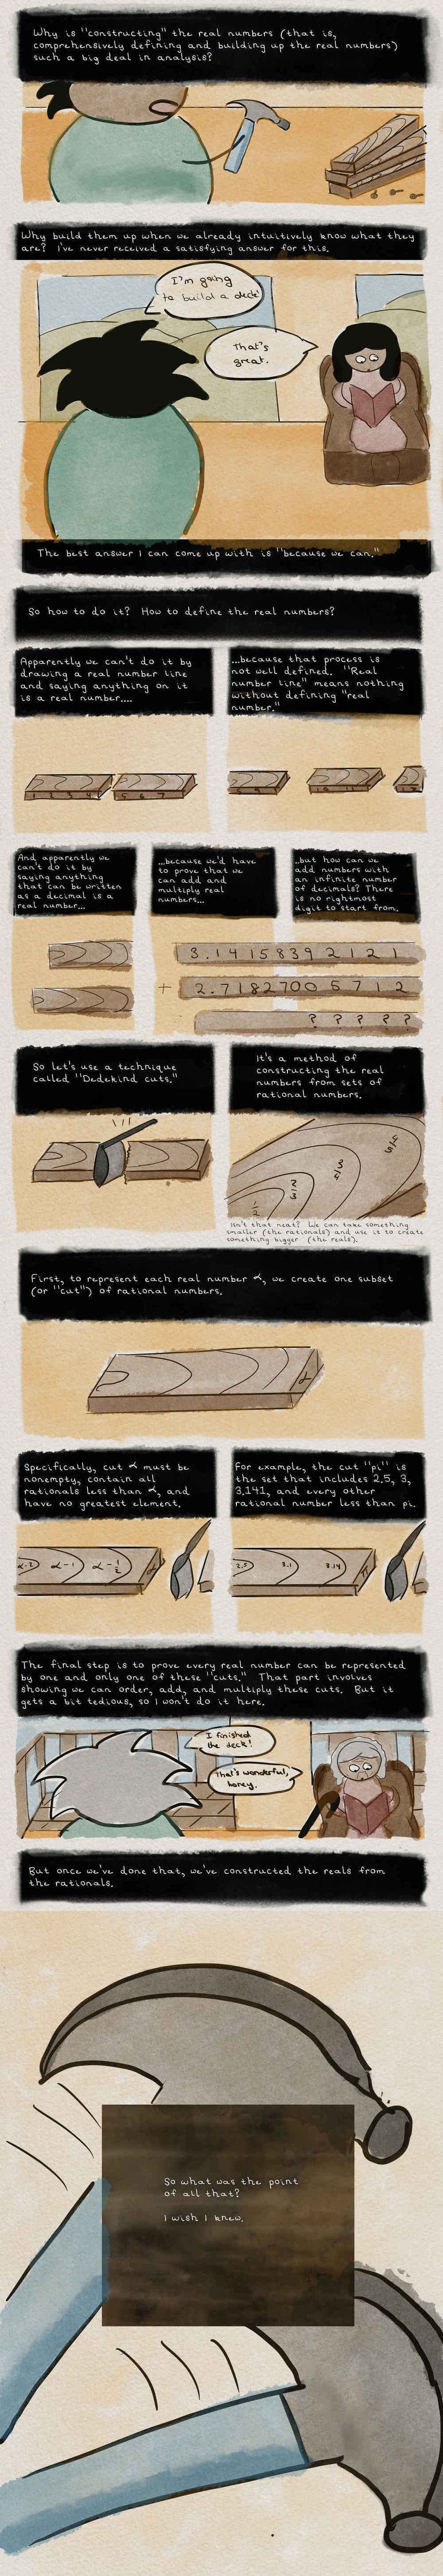 Why is "constructing" the real numbers (that is,
comprehensively defining and building up the real numbers)
such a big deal in analysis?
Why build them up when we already intuitively know what they
are? I've never received a satisfying answer for this.
I'm going
to build a deck!
That's
great.
The best answer I can come up with is "because we can."
So how to do it? How to define the real numbers?
Apparently we can't do it by
drawing a real number line
and saying anything on it
is a real number....
...because that process is
not well defined. "Real
number line" means nothing
without defining "real
number."
And apparently we
can't do it by
saying anything
that can be written
as a decimal is a
real number...
...because we'd have
to prove that we
can add and
multiply real
numbers...
...but how can we
add numbers with
an infinite number
of decimals? There
is no rightmost
digit to start from.
3.1415839 2 1 2 1
+ 2.71827005 7 1 2
? ? ? ? ?
So let's use a technique
called "Dedekind cuts."
It's a method of
constructing the real
numbers from sets of
rational numbers.
1/2 2/3 3/4 4/5
Isn't that neat? We can take something
smaller (the rationals) and use it to create
something bigger (the reals).
First, to represent each real number α, we create one subset
(or "cut") of rational numbers.
α
Specifically, cut α must be
nonempty, contain all
rationals less than α, and
have no greatest element.
For example, the cut "pi" is
the set that includes 2.5, 3,
3.141, and every other
rational number less than pi.
α-2 α-1 α-1/2 α
2.5 3.1 3.14 π
The final step is to prove every real number can be represented
by one and only one of these "cuts." That part involves
showing we can order, add, and multiply these cuts. But it
gets a bit tedious, so I won't do it here.
I finished
the deck!
That's wonderful,
honey.
But once we've done that, we've constructed the reals from
the rationals.
So what was the point
of all that?
I wish I knew.